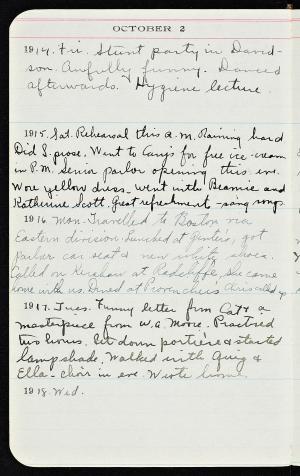 OCTOBER 2
1914. Fri. Stunt party in David-
son. Awfully funny. Danced
afterwards. Hygiene lecture.
1915. Sat. Rehearsal this a.m. Raining hard
Did L. prose. Went to Cary's for free ice-cream
in P.M. Senior parlor opening this eve.
Wore yellow dress. Went with Beamie and
Katherine Scott. Great refreshment - sang songs
1916. Mon. Travelled to Boston via
Eastern division. Lunched at got
parlor car seat & new white shoes.
Called on at Radcliffe. She came
home with us. Dined at Provenchers. called up
1917. Tues. Funny letter from Cat & a
masterpiece from W.A. Moore. Practised
two hours. Let down portière & started
lampshade. Walked with Guig &
Ella - choir in eve. Wrote home.
1918. Wed.